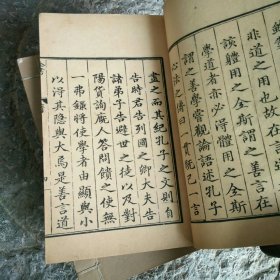 非道之用也故在言
該體用之全斯謂之善
學道者亦必得體用之全斯
謂之善學嘗觀論語述孔子
心法之傳曰一貫既已一言
盡之而其紀孔子之文則自
告時君告列國之卿大夫告
諸弟子告避世之徒以及對
陽貨詢廄人答問饋之使無
一弗錄將使學者由顯與小
以得其隱與大焉是善言道